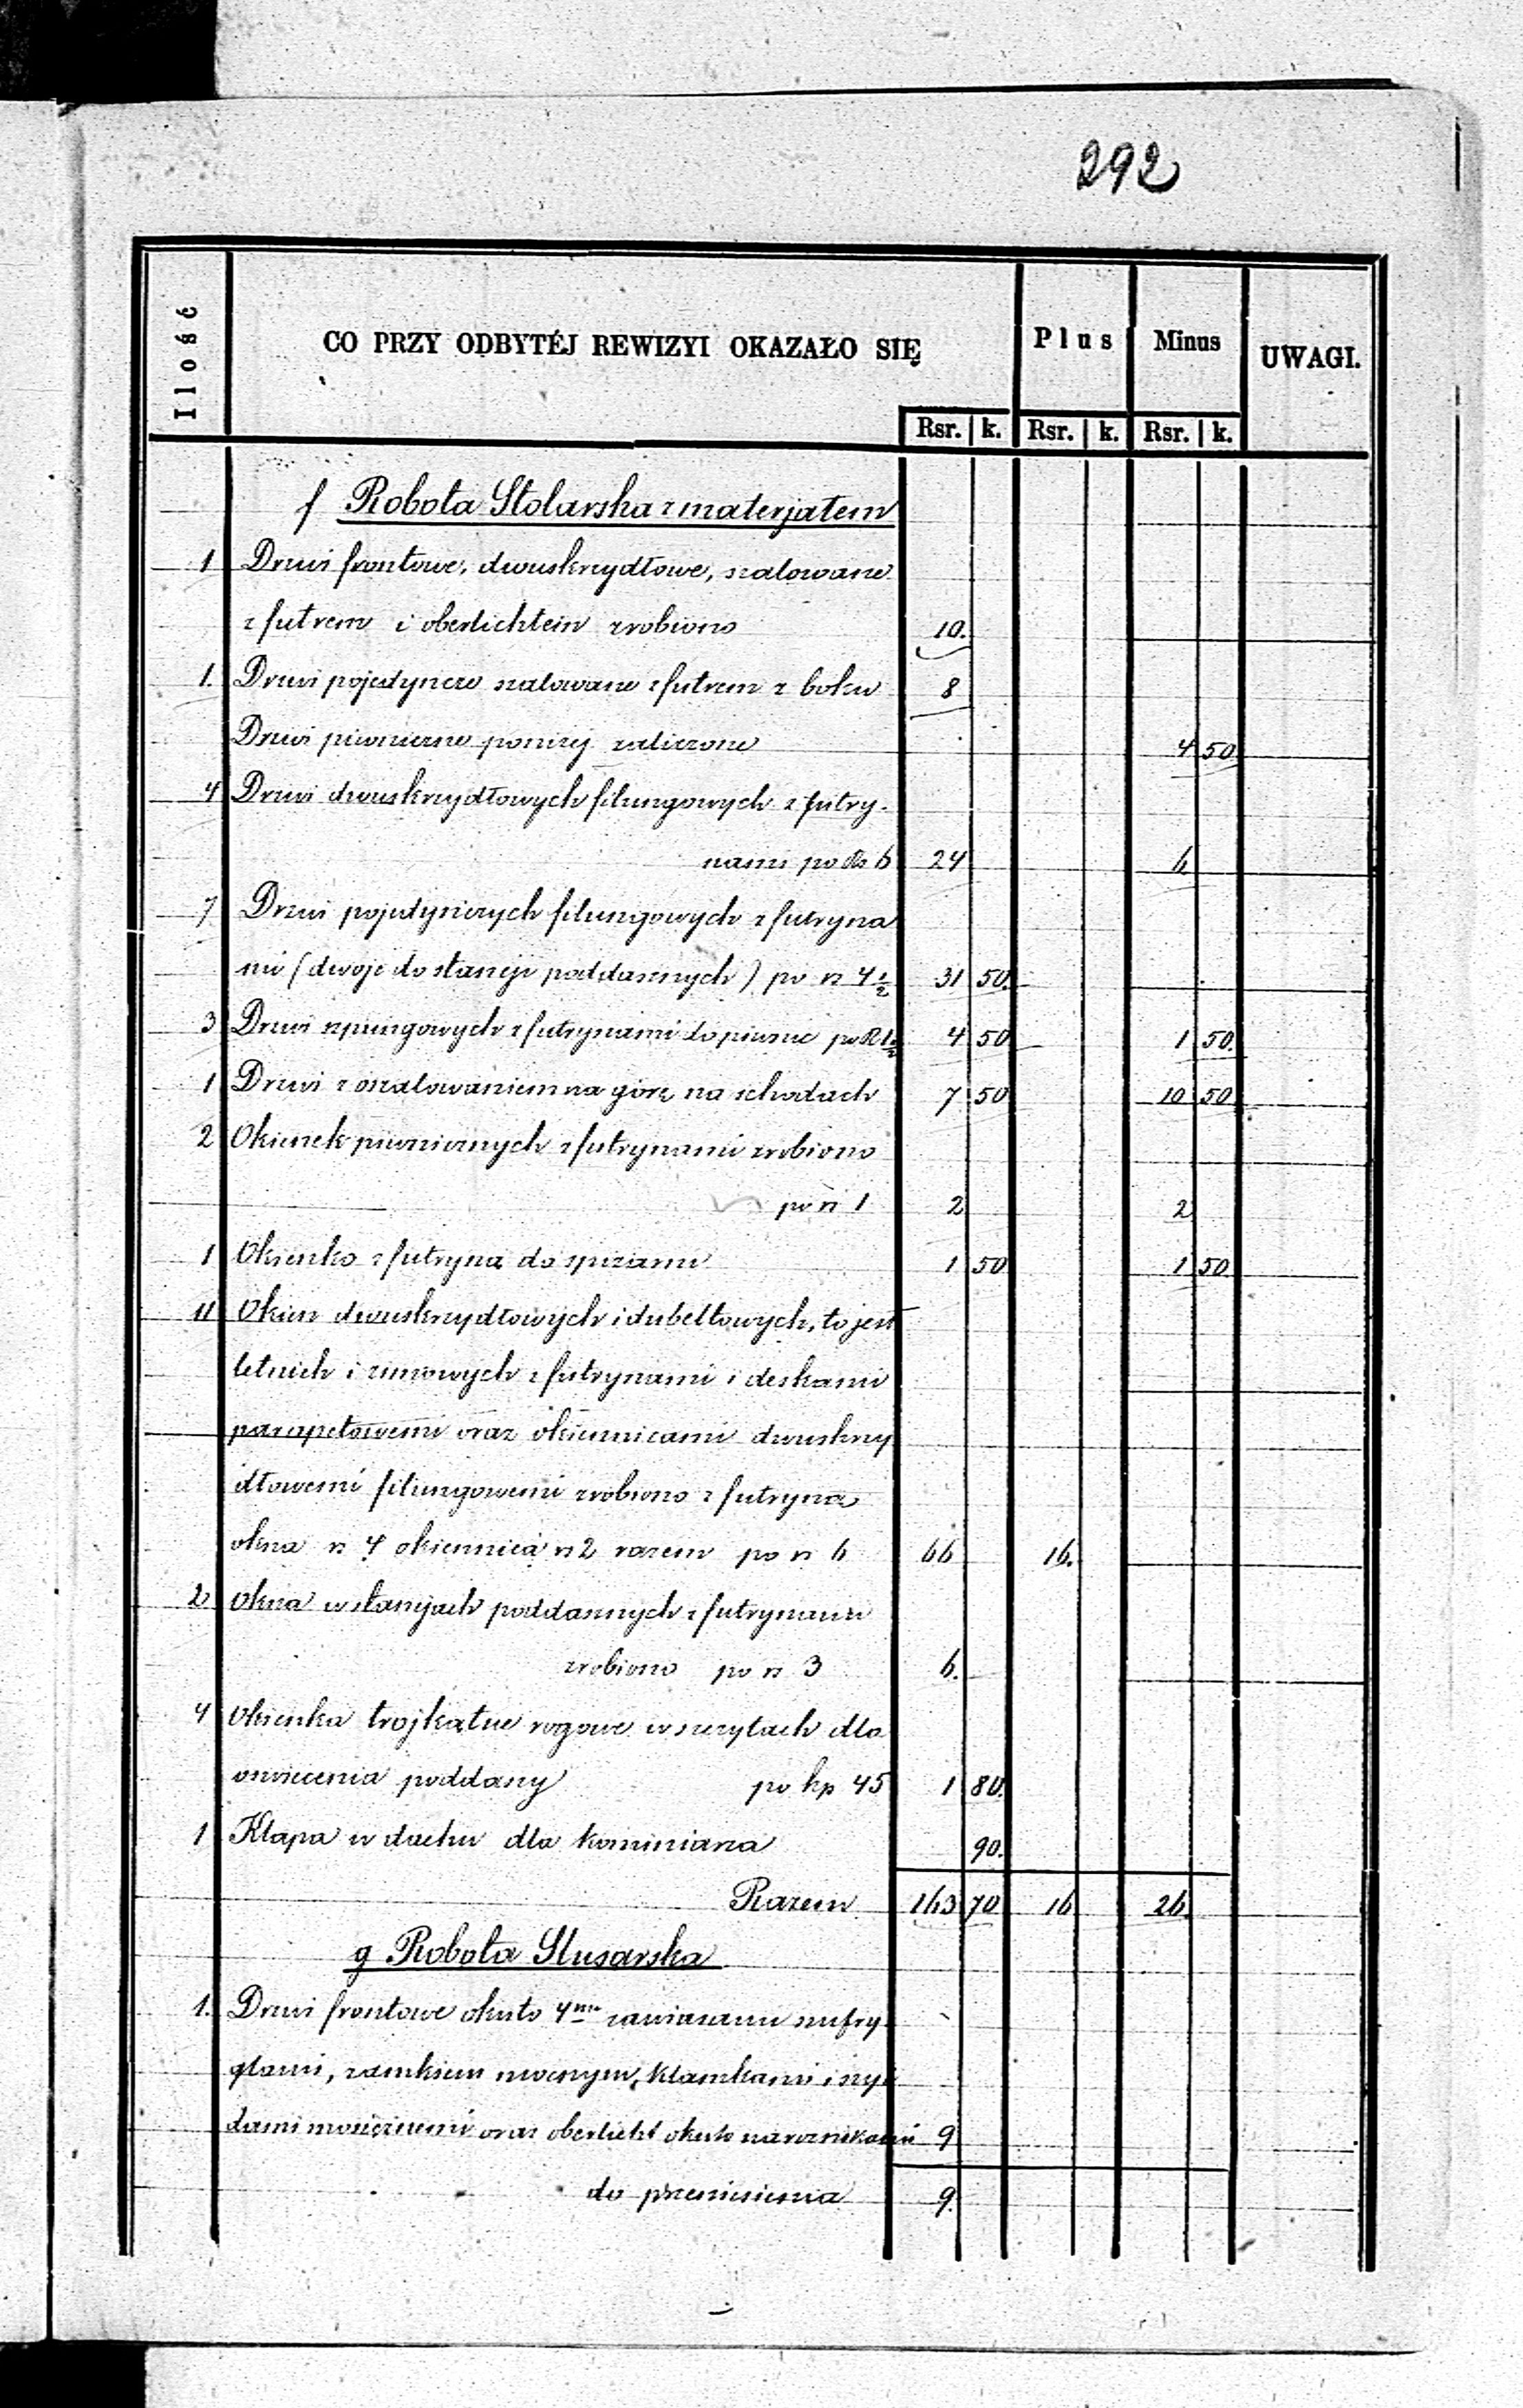 292
Ilość CO PRZY ODBYTÉJ REWIZYI OKAZAŁO SIĘ Plus Minus UWAGI.
Rsr. k. Rsr. k. Rsr. k.
f Robota Stolarska z materjałem
1 Drzwi frontowe, dwuskrzydłowe, szalowane
z futrem i oberlichtem zrobiono 10.
1. Drzwi pojedyncze szalowane z futrem z boku 8
Drzwi piwniczne poniżej zaliczone 4 50
4 Drzwi dwuskrzydłowych filungowych z futry-
nami po Rs 6 24 6
7 Drzwi pojedynczych filungowych z futryna
mi (dwoje do stancji poddasznych) po rs 4 1/2 31 50.
3 Drzwi szpungowych z futrynami do piwnic po R 1 1/2 4 50 1 50.
1 Drzwi z oszalowaniem na górę na schodach 7 50 10 50
2 Okienek piwnicznych z futrynami zrobiono
po rs 1 2 2
1 Okienko z futryną do spiżarni 1 50 1 50
11 Okien dwuskrzydłowych i dubeltowych, to jest
letnich i zimowych z futrynami i deskami
parapetowemi oraz okiennicami dwuskrzy
dłowemi filungowemi zrobiono z futryną
okna rs 4 okiennica rs 2 razem po rs 6 66 16.
2 Okna w stancjach poddasznych z futrynami
zrobiono po rs 3 6.
4 Okienka trojkątne rogowe w szczytach dla
oświecenia poddaszy po kp 45 1 80.
1 Klapa w dachu dla kominiarza 90.
Razem 163 70 16 26
g Robota Slusarska
1. Drzwi frontowe okuto 4ma zawiasami szufry-
glami, zamkiem mocnym, klamkami i szyl
dami mosiężnemi oraz oberlicht okuto narożnikami 9
do przeniesienia 9.